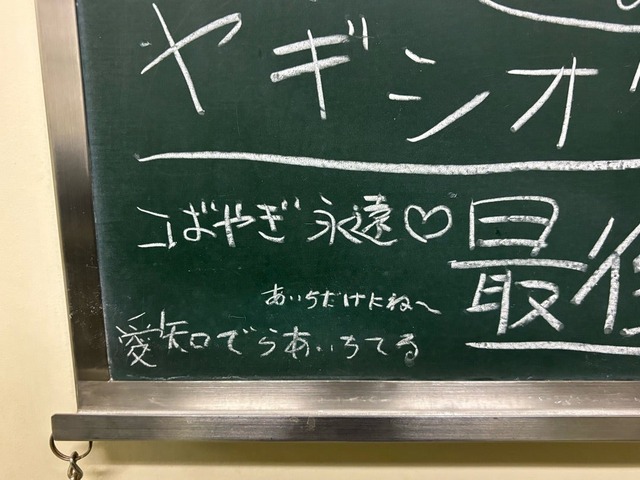 ヤギシオ
こばやぎ 永遠♡
最後
あいちだけにね〜
愛知でらあいちてる